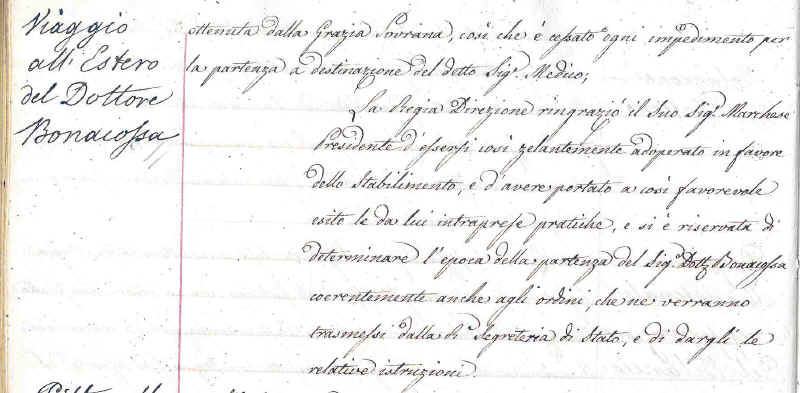 Viaggio
all' Estero
del Dottore
Bonacossa
ottenuta dalla Grazia Sovrana, così che è cessato ogni impedimento per
la partenza a destinazione del detto Sig.r Medico;
La Regia Direzione ringraziò il Suo Sig.r Marchese
Presidente d'essersi così zelantemente adoperato in favore
dello Stabilimento, e d'avere portato a così favorevole
esito le da lui intraprese pratiche, e si è riservata di
determinare l'epoca della partenza del Sig.r Dott. Bonacossa
coerentemente anche agli ordini, che ne verranno
trasmessi dalla Segreteria di Stato, e di dargli le
relative istruzioni.